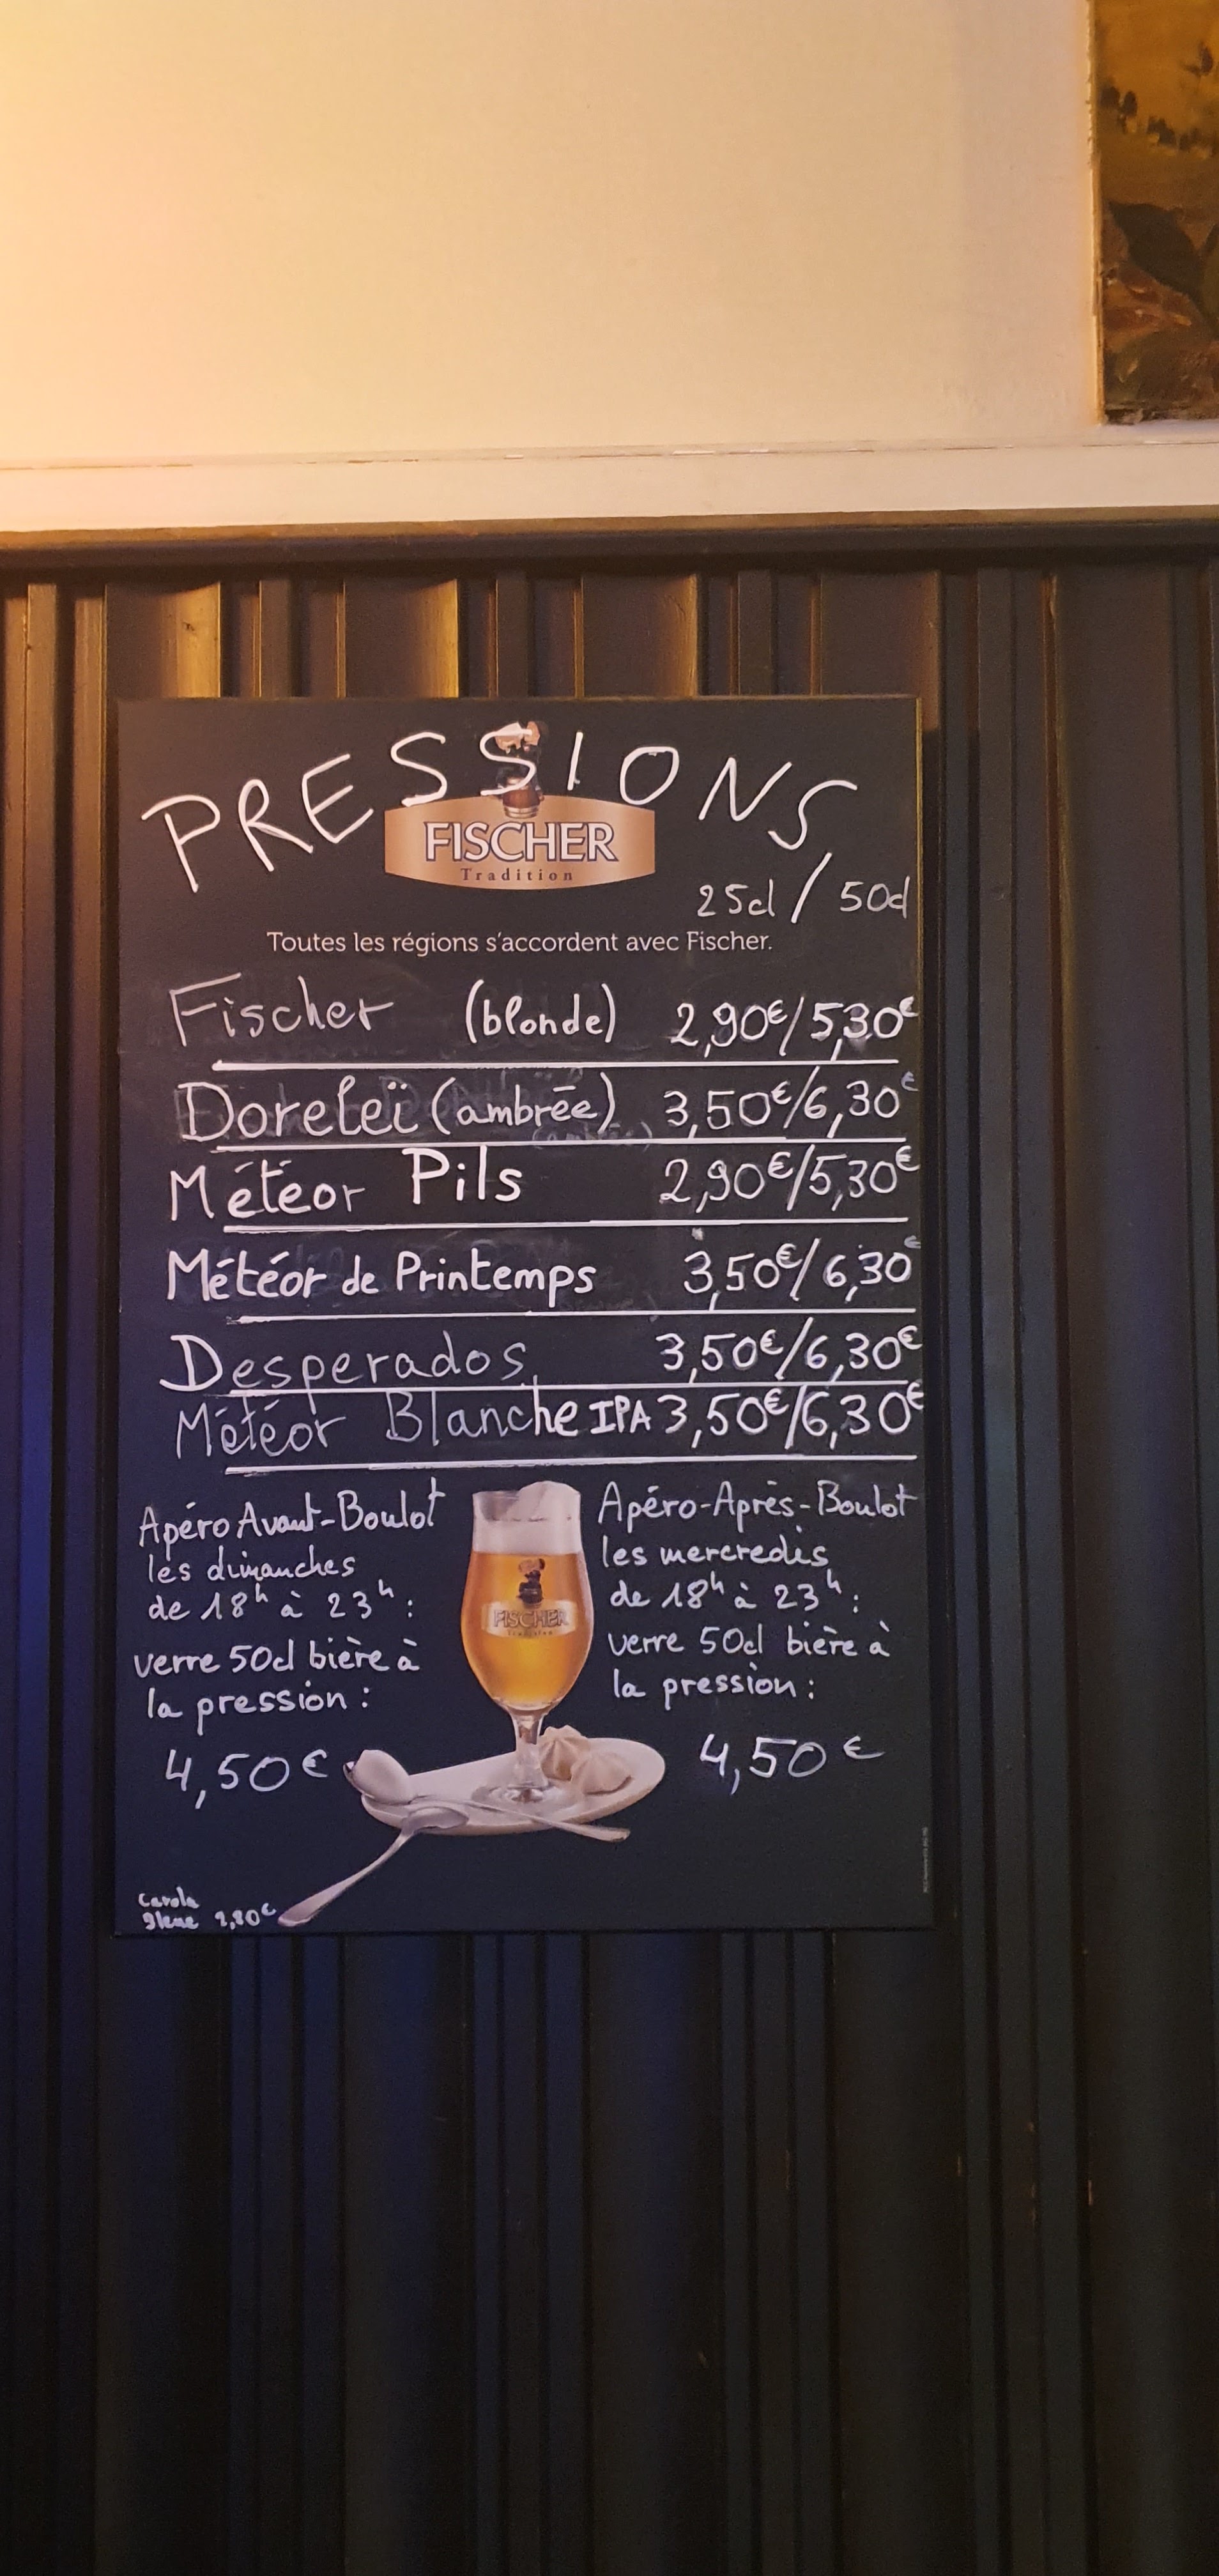 PRESSIONS
FISCHER
Tradition
25cl / 50cl
Toutes les régions s'accordent avec Fischer.
Fischer (blonde) 2,90€/5,30€
Doreleï (ambrée) 3,50€/6,30€
Météor Pils 2,90€/5,30€
Météor de Printemps 3,50€/6,30€
Desperados 3,50€/6,30€
Météor Blanche IPA 3,50€/6,30€
Apéro Avant-Boulot
les dimanches
de 18h à 23h :
verre 50cl bière à
la pression :
4,50€
FISCHER
Tradition
Apéro-Après-Boulot
les mercredis
de 18h à 23h :
verre 50cl bière à
la pression :
4,50€
Carola